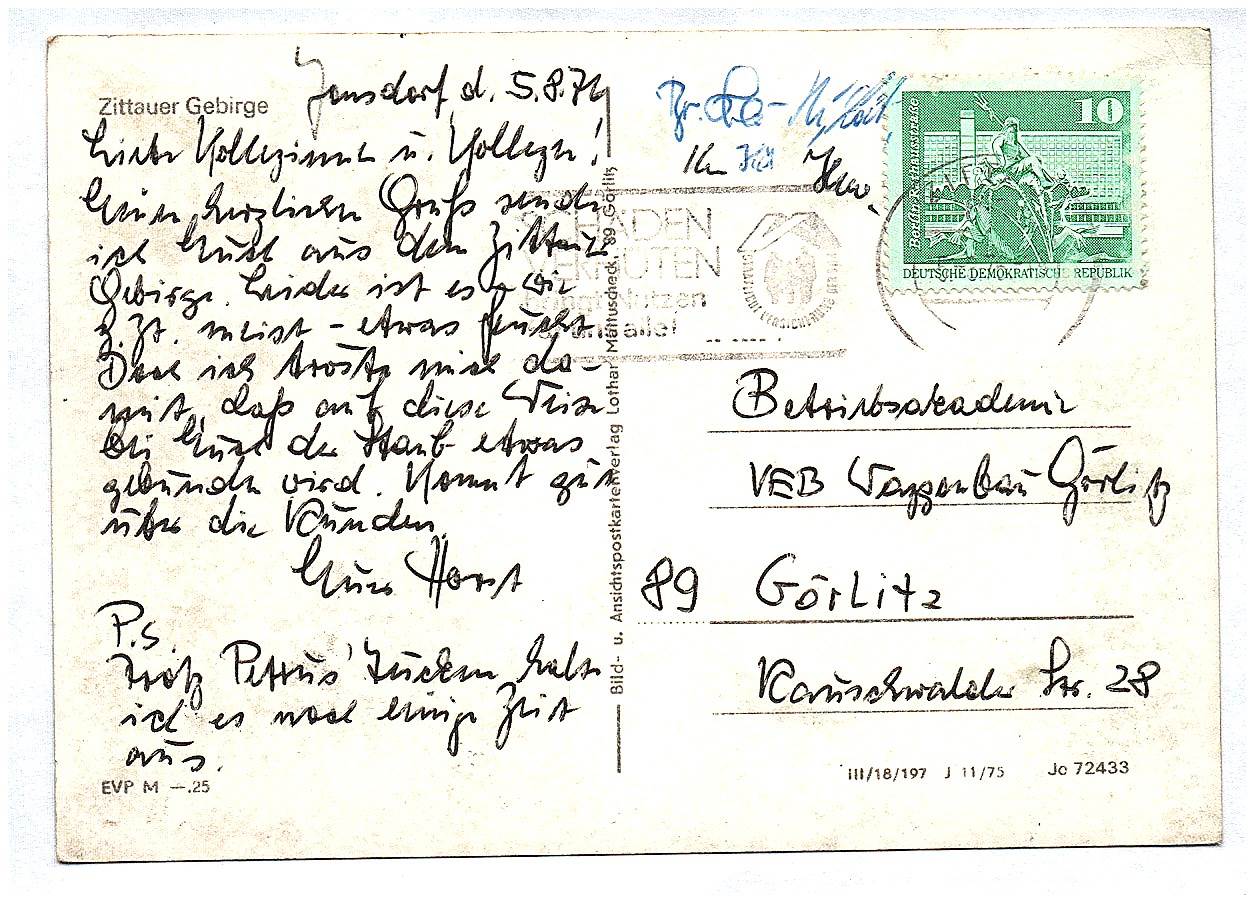 Zittauer Gebirge
Jonsdorf, d. 5.8.76
Liebe Kolleginnen u. Kollegen!
Einen herzlichen Gruß sende
ich Euch aus dem Zittauer
Gebirge. Leider ist es – wie
z. Zt. meist – etwas feucht.
Doch ich tröste mich da-
mit, daß auf diese Weise
bei Euch der Staub etwas
gebunden wird. Kommt gut
über die Runden.
Euer Horst
P.S.
Trotz Petrus' Tücken halte
ich es noch einige Zeit
aus.
EVP M –.25
Bild- u. Ansichtspostkartenverlag Lothar Mattuscheck, 89 Görlitz
SCHADEN
VERHÜTEN
bringt Nutzen
für uns alle!
10
DEUTSCHE DEMOKRATISCHE REPUBLIK
Betriebsakademie
VEB Waggonbau Görlitz
89 Görlitz
Rauschwalder Str. 28
III/18/197 J 11/75 Jo 72433